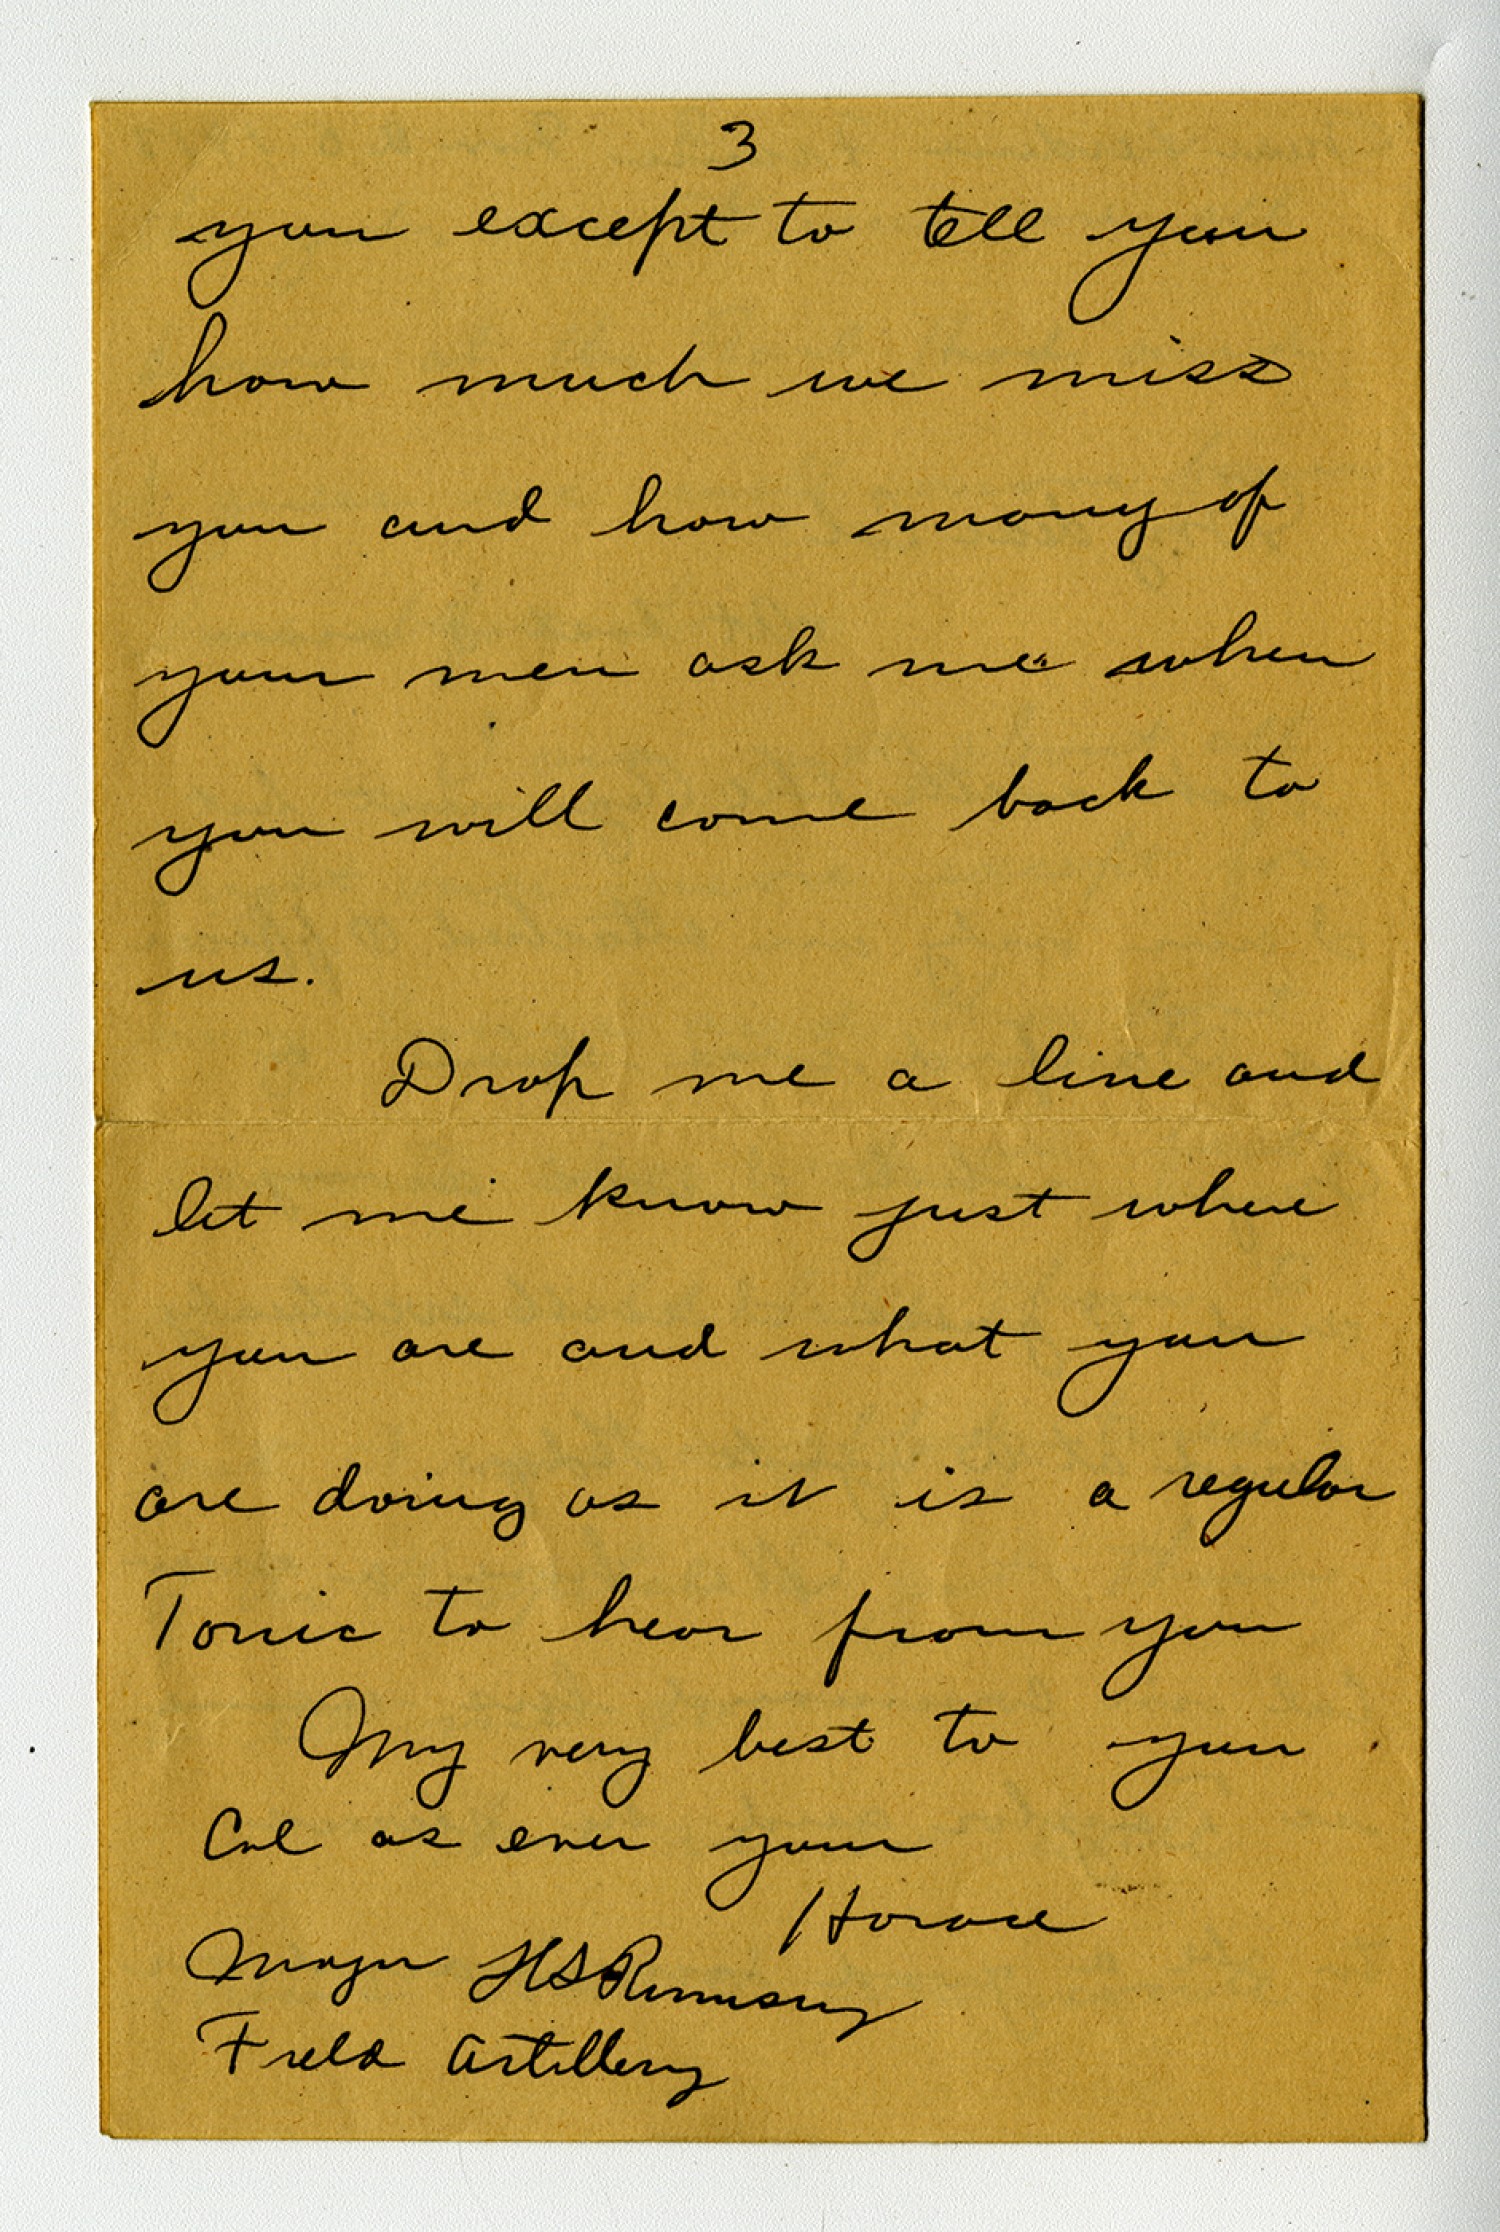 3
you except to tell you
how much we miss
you and how many of
your men ask me when
you will come back to
us.
Drop me a line and
let me know just where
you are and what you
are doing as it is a regular
Tonic to hear from you
My very best to you
Col as ever your
Horace
Major HS
Field Artillery